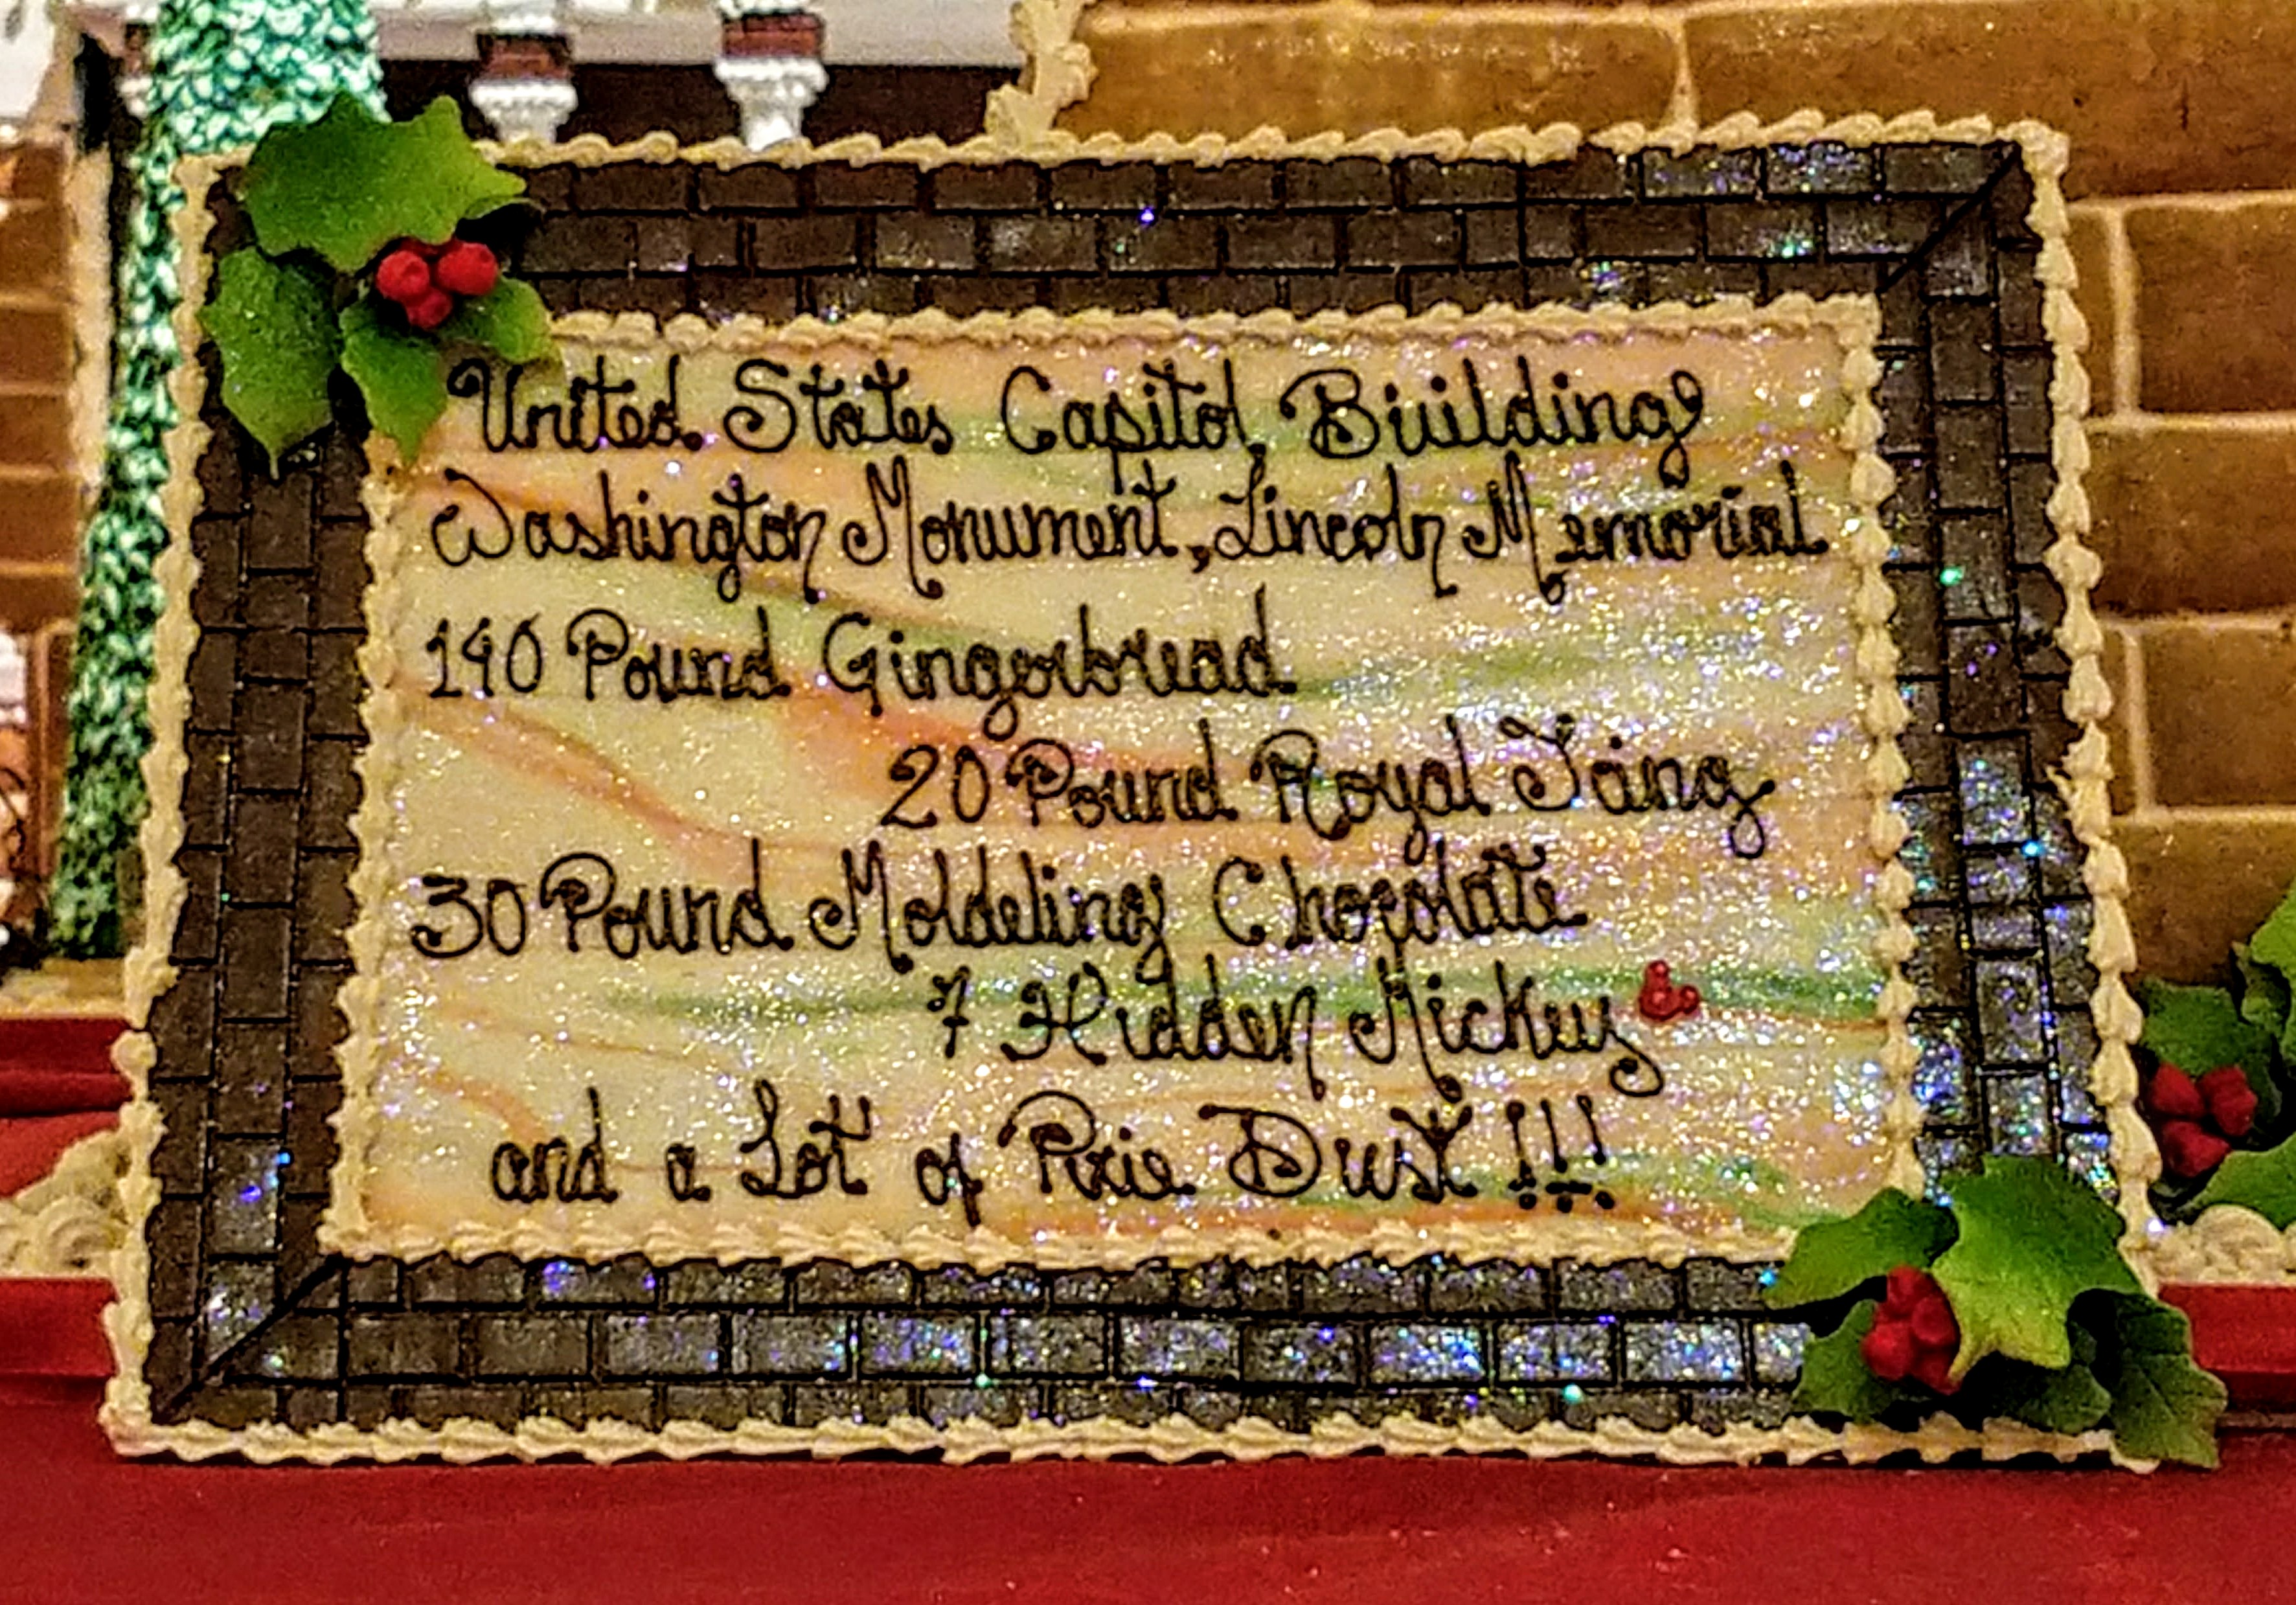 United States Capitol Building
Washington Monument, Lincoln Memorial
140 Pound Gingerbread
20 Pound Royal Icing
30 Pound Moldeling Chocolate
7 Hidden Mickey
and a Lot of Pixie Dust !!!